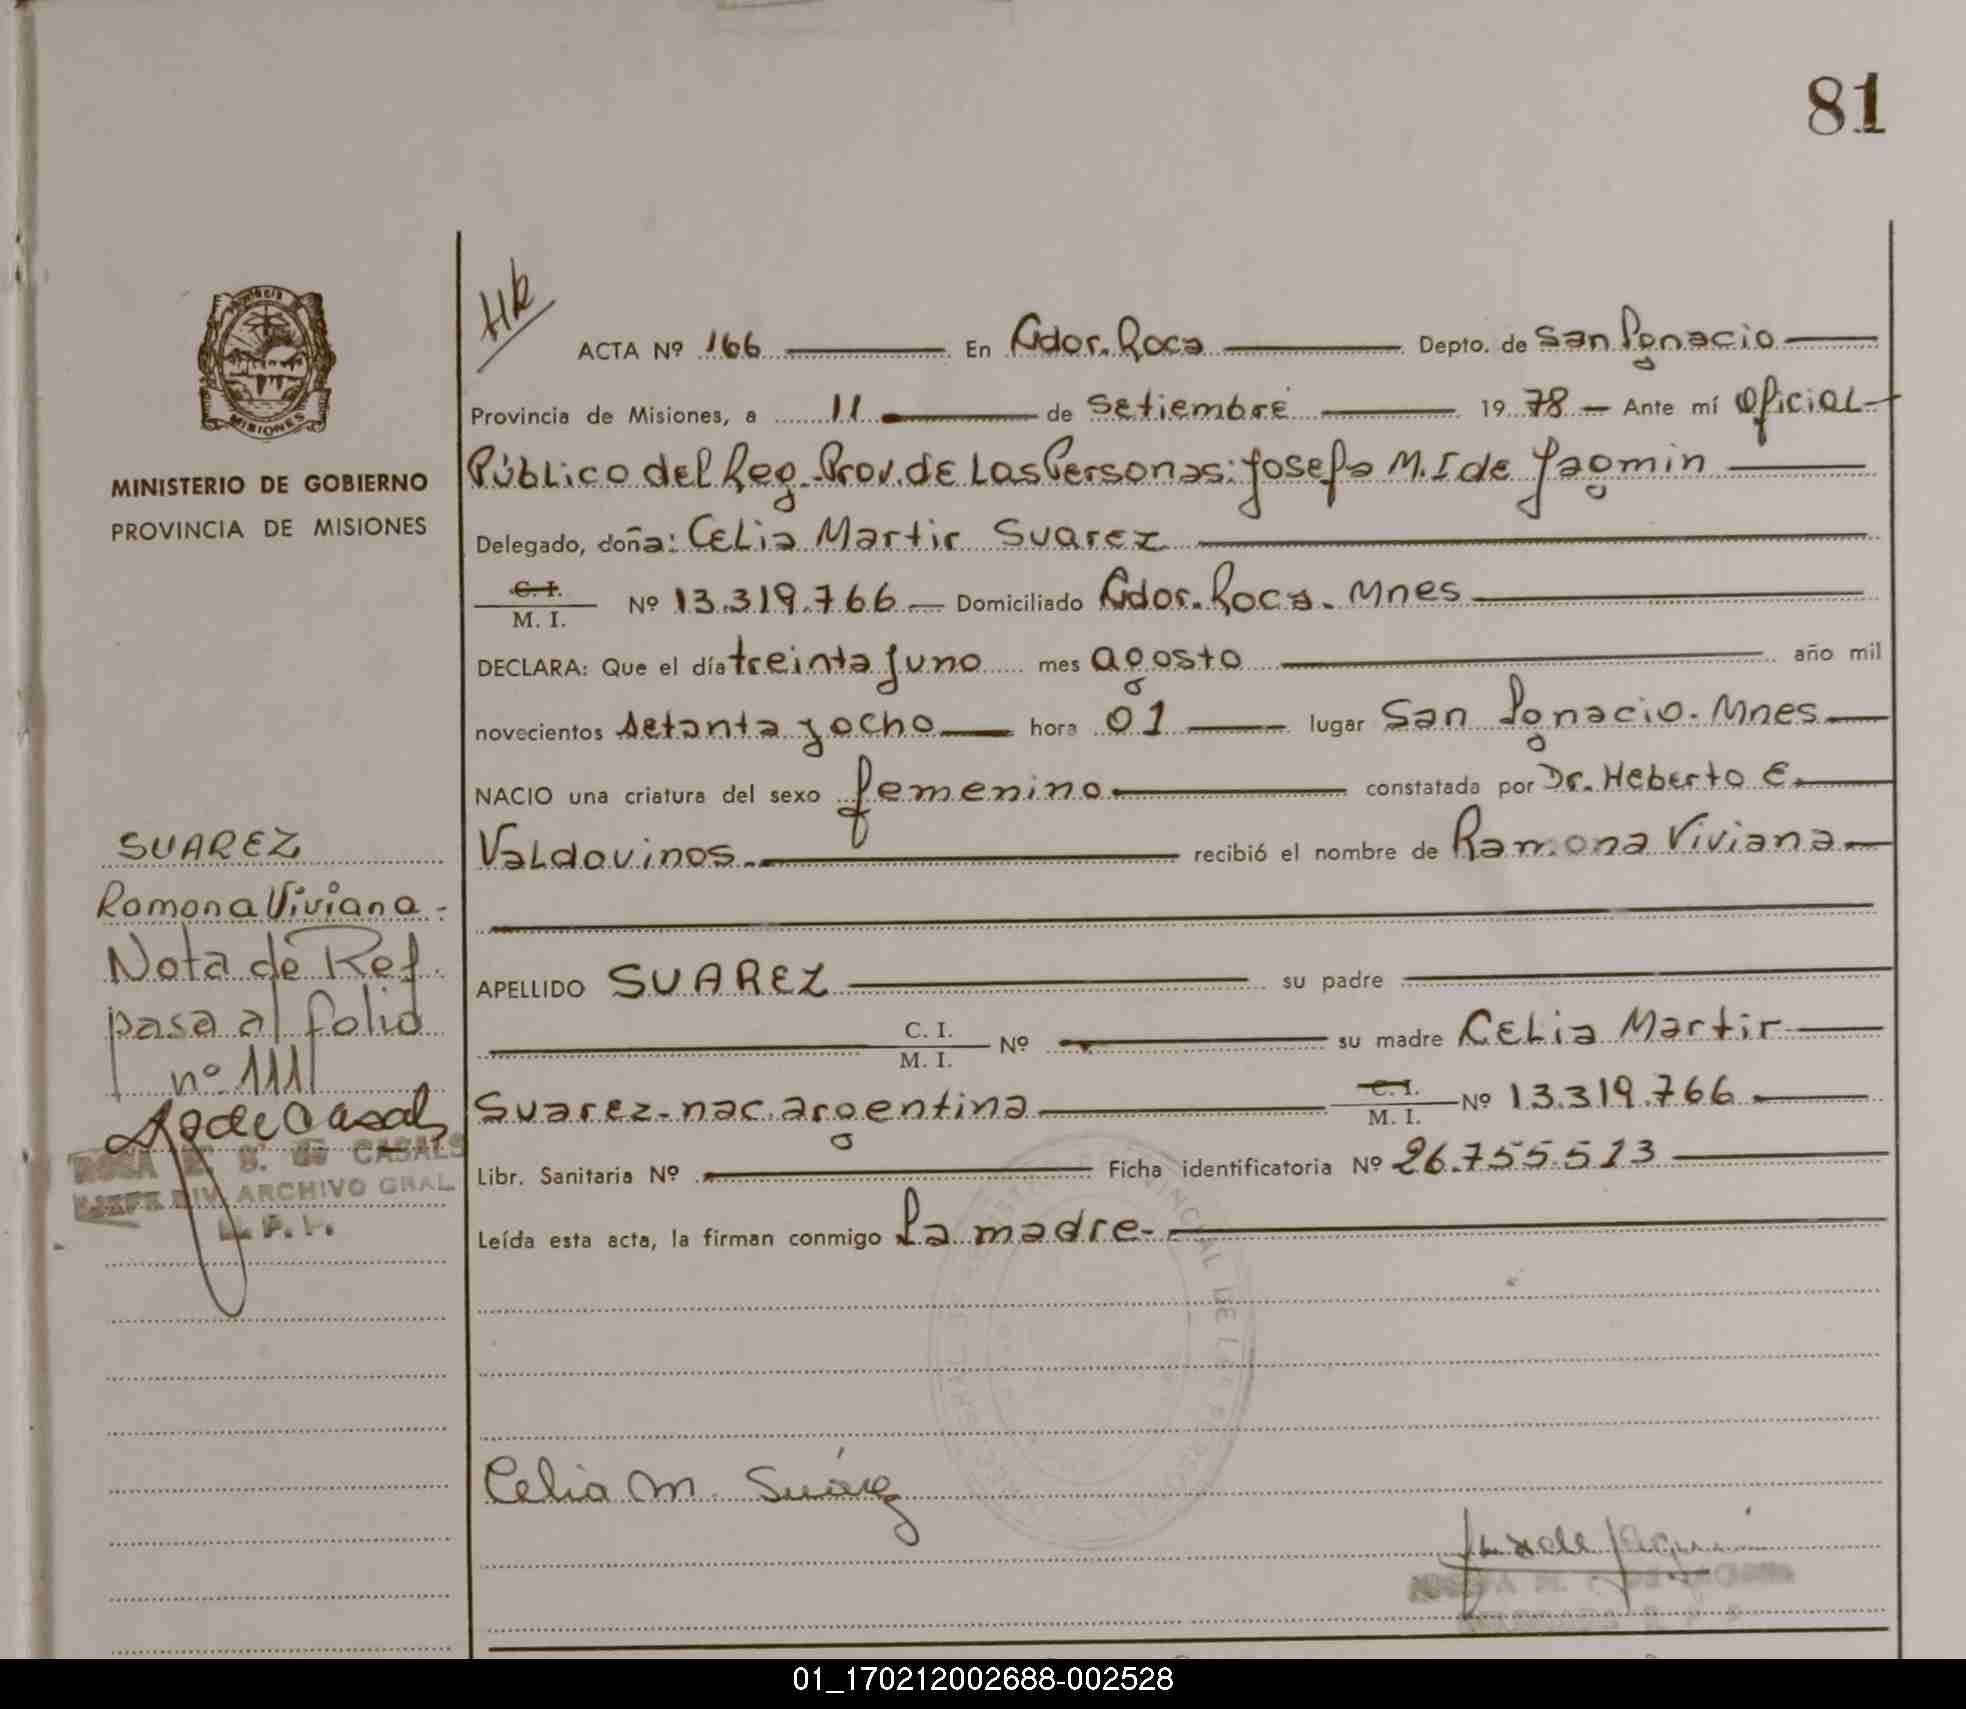 81
HR
ACTA Nº 166 En Gdor. Roca Depto. de San Ignacio
Provincia de Misiones, a 11 de Setiembre 1978 Ante mí Oficial
Público del Reg. Prov. de Las Personas: Josefa M. I de Jagmin
Delegado, doña: Celia Martir Suarez
C. I.
M. I. Nº 13.319.766 Domiciliado Gdor. Roca. Mnes
DECLARA: Que el día treinta y uno mes agosto año mil
novecientos setenta y ocho hora 01 lugar San Ignacio. Mnes
NACIO una criatura del sexo femenino constatada por Dr. Heberto E.
Valdovinos. recibió el nombre de Ramona Viviana
APELLIDO SUAREZ su padre
C. I.
M. I. Nº su madre Celia Martir
Suarez - nac. argentina C. I.
M. I. Nº 13.319.766
Libr. Sanitaria Nº Ficha identificatoria Nº 26.755.513
Leída esta acta, la firman conmigo La madre-
Celia M. Suárez
MISIONES
MINISTERIO DE GOBIERNO
PROVINCIA DE MISIONES
SUAREZ
Ramona Viviana -
Nota de Ref.
pasa al folio
nº 111
ROSA E. S. de CASALS
JEFE DIV. ARCHIVO GRAL.
01_170212002688-002528